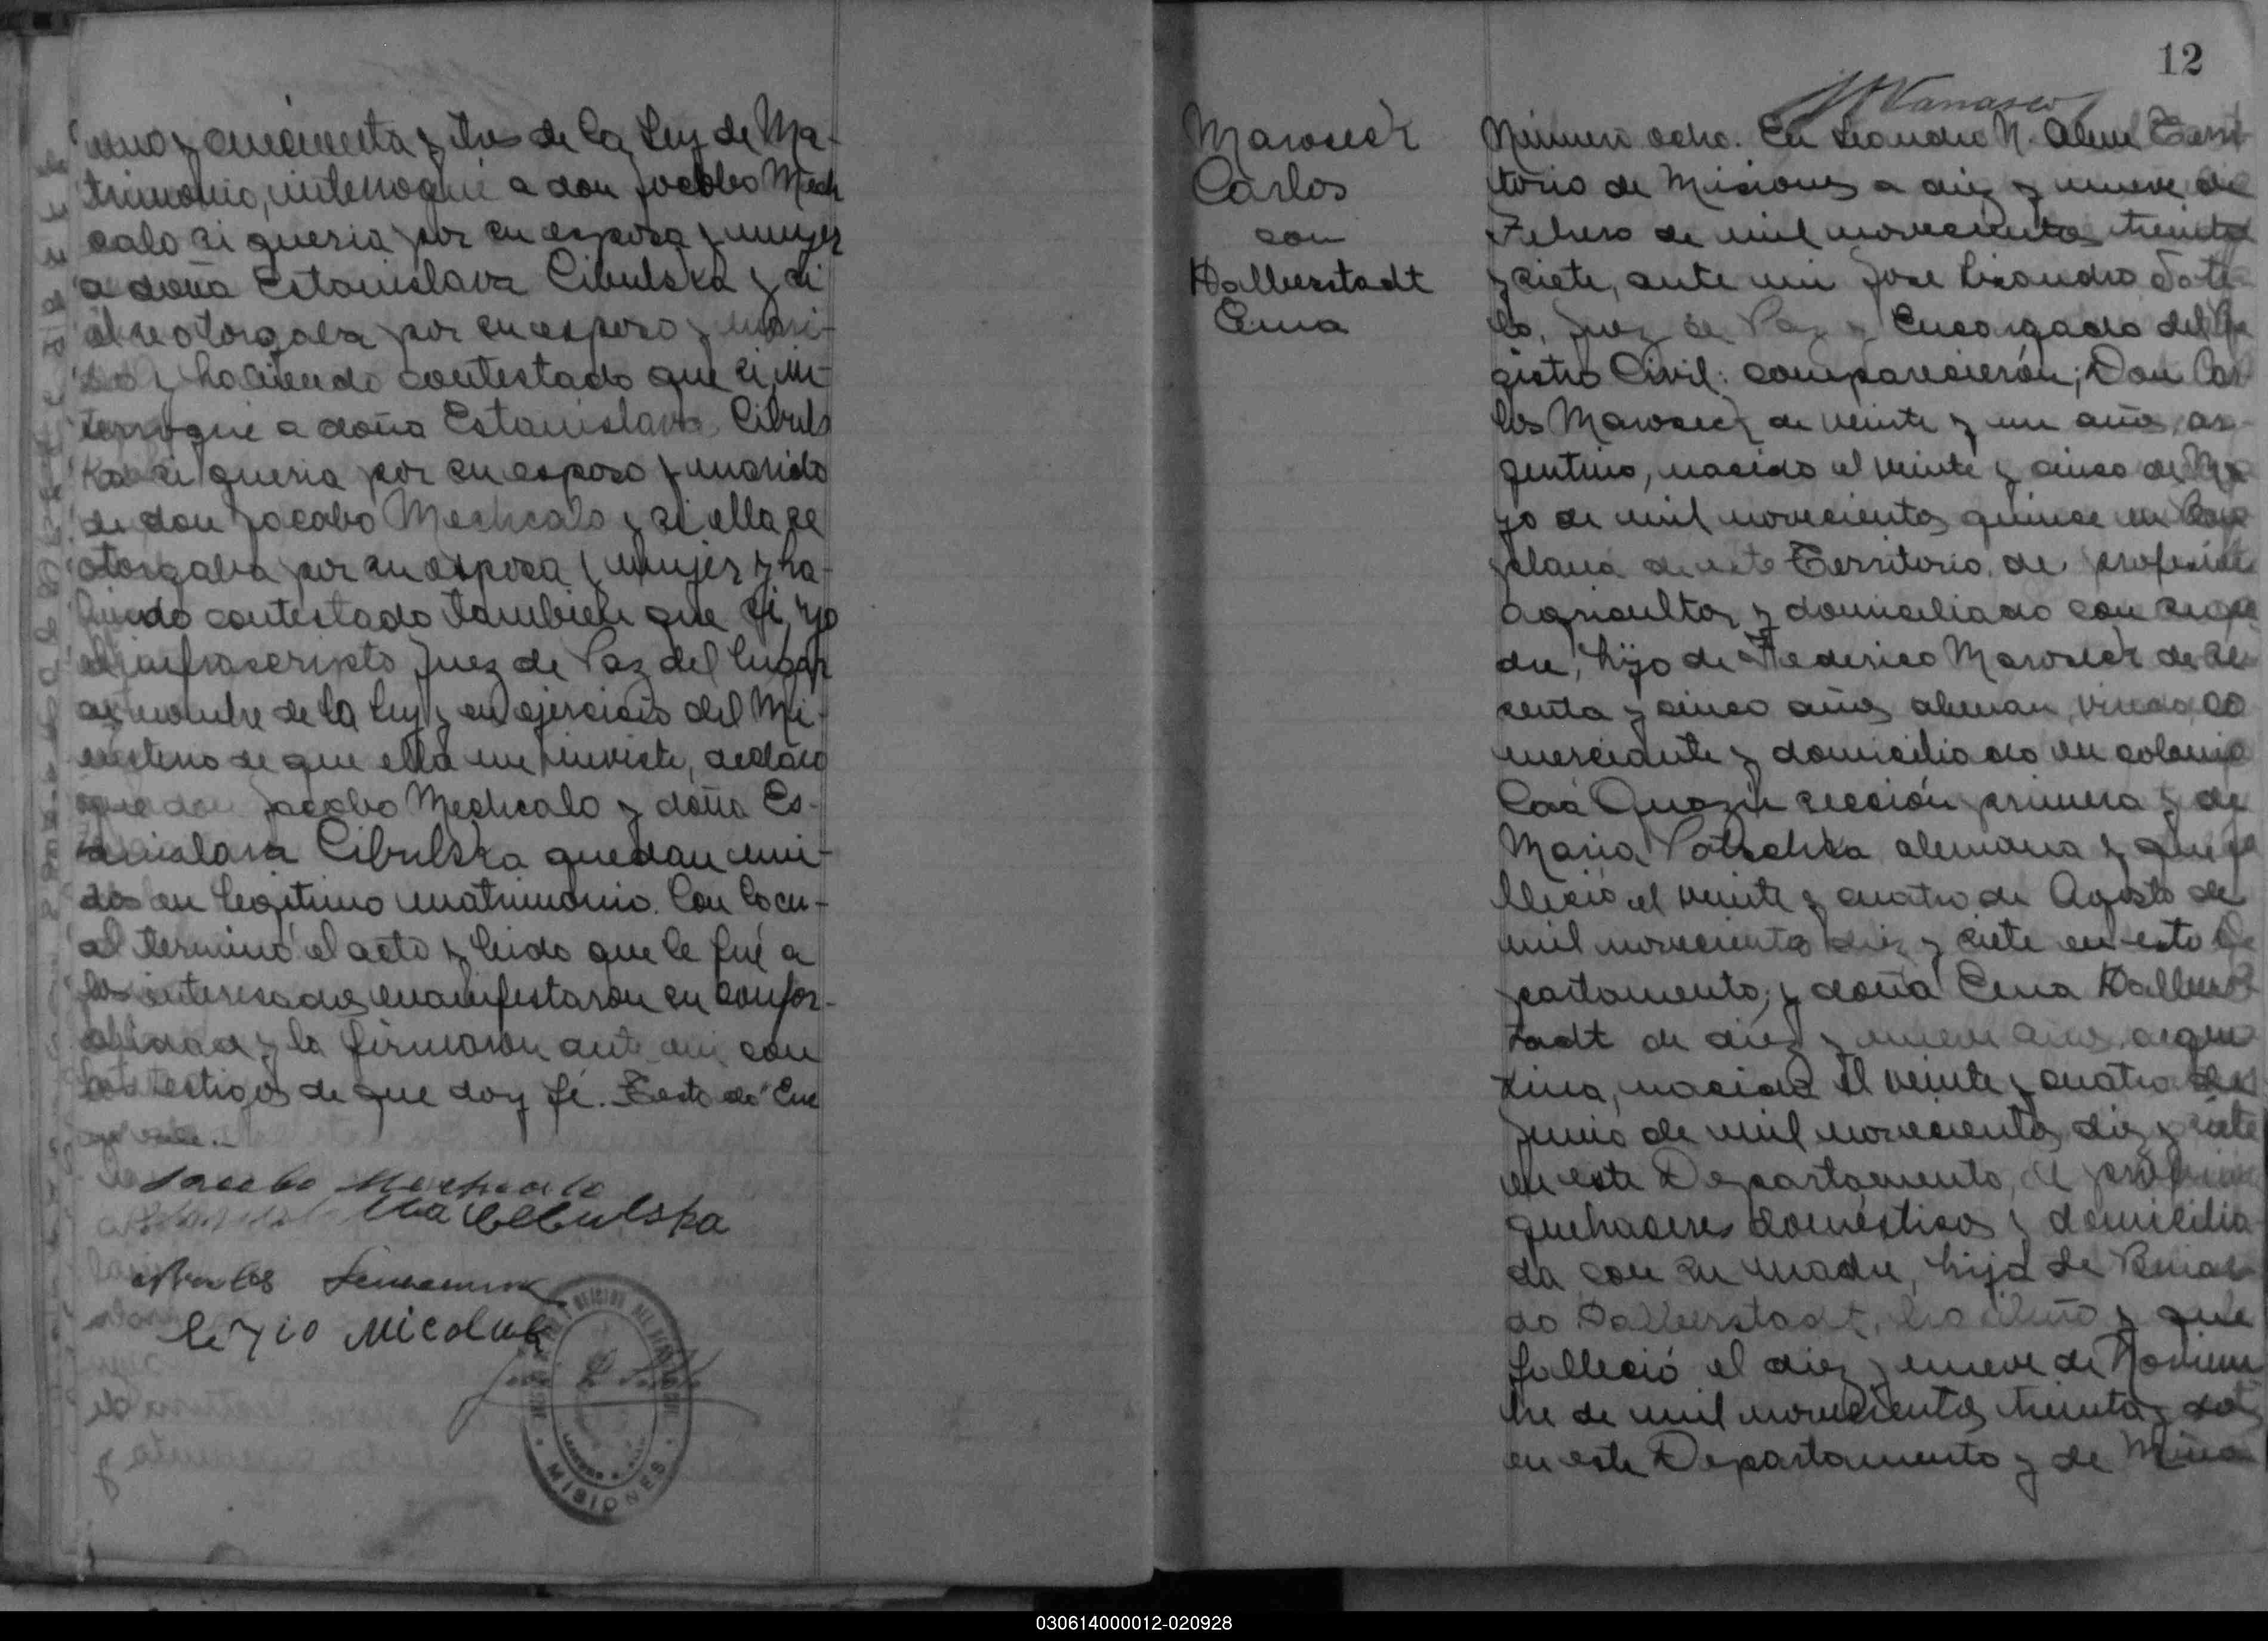 uno y cincuenta y tres de la Ley de Ma-
trimonio, interrogué a don Jocobo Mech
calo si queria por su esposa y mujer
a doña Estanislava Cibulska y si
el se otorgaba por su esposo y mari-
do y habiendo contestado que si, in-
terrogué a doña Estanislava Cibuls
ka si queria por su esposo y marido
de don Jocabo Mechcalo y si ella se
otorgaba por su esposa y mujer y ha-
biendo contestado tambien que si, yo
el infrascripto Juez de Paz del lugar
a nombre de la Ley y en ejercicio del Mi-
nisterio de que ella me inviste, declaro
que don Jacobo Mechcalo y doña Es-
tanislava Cibulska quedan uni-
dos en legitimo matrimonio. Con lo cu-
al terminó el acto y leido que le fué a
los interesados manifestaron su confor-
midad y la firmaron ante mi con
los testigos de que doy fé. Testado
Jacobo Mechcalo
Cebulska
Sergio Nicoluk
MISIONES
12
Maroseck
Carlos
con
Halberstadt
Ema
Número ocho. En Leandro N. Alem Terri
torio de Misiones a diez y nueve de
Febrero de mil novecientos treinta
y siete, ante mi Jose Lisandro Sote
lo, Juez de Paz y Encargado del Re
gistro Civil: comparecierón; Don Car
los Maroseck de veinte y un año, ar
gentino, nacido el veinte y cinco de Ma
yo de mil novecientos quince en Cam
plana de este Territorio, de profesión
agricultor y domiciliado con su pa
dre, hijo de Federico Maroseck de se
senta y cinco años aleman, viudo, co
merciante y domiciliado en colonia
Caá Guazú sección primera y de
Maria Patschka alemana y que fa
lleció el veinte y cuatro de Agosto de
mil novecientos diez y siete en este De
partamento; y doña Ema Halbers
tadt de diez y nueve años, argen
tina, nacida el veinte y cuatro de
Junio de mil novecientos diez y siete
en este Departamento, de profesion
quehaceres domésticos y domicilia
da con su madre, hija de Reinal
do Halberstadt, brasileño y que
falleció el diez y nueve de Noviem
bre de mil novecientos treinta y dos
en este Departamento y de Mina
030614000012-020928